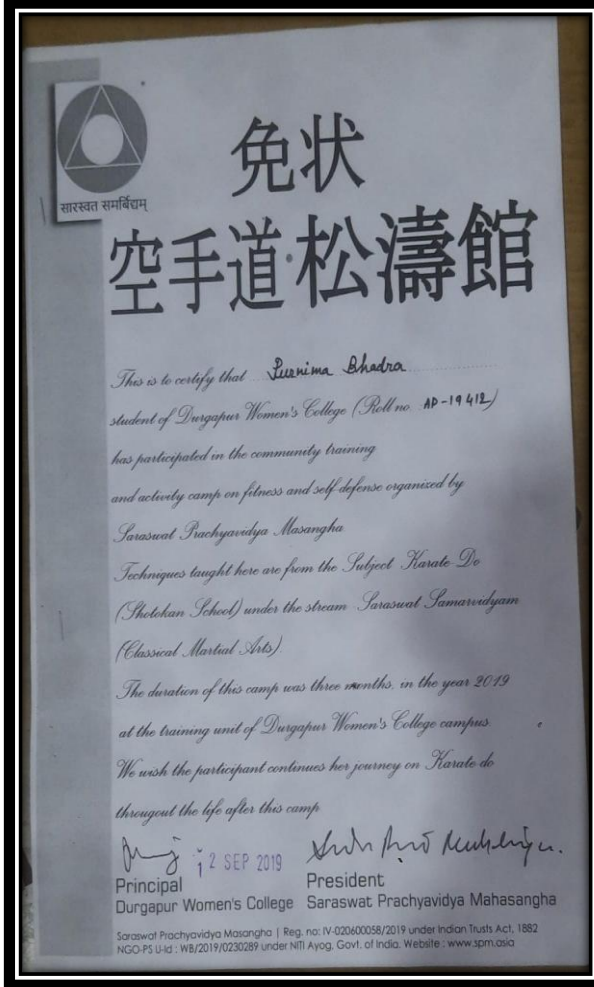 सारस्वत समर्बिद्यम्
免状
空手道·松濤館
This is to certify that Purnima Bhadra
student of Durgapur Women's College (Roll no. AP-19412)
has participated in the community training
and activity camp on fitness and self defense organized by
Saraswat Prachyavidya Masangha
Techniques taught here are from the Subject Karate-Do
(Shotokan School) under the stream Saraswat Samarvidyam
(Classical Martial Arts).
The duration of this camp was three months, in the year 2019
at the training unit of Durgapur Women's College campus
We wish the participant continues her journey on Karate do
througout the life after this camp
12 SEP 2019
Principal President
Durgapur Women's College Saraswat Prachyavidya Mahasangha
Saraswat Prachyavidya Masangha | Reg. no: IV-020600058/2019 under Indian Trusts Act, 1882
NGO-PS U-Id : WB/2019/0230289 under NITI Ayog, Govt. of India. Website : www.spm.asia